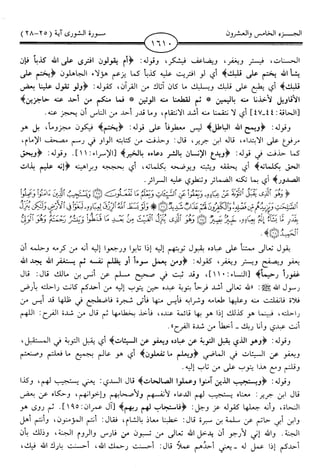 الجـــزء الخامس والعشرون
١٦١٠
سورة الشورى آية (٢٥-٢٨)
الحسنات، فيستر ويغفر، ويضاعف فيشكر، وقوله: ﴿أم يقولون افترى على الله كذباً فإن
يشأ الله يختم على قلبك﴾ أي لو افتريت عليه كذباً كما يزعم هؤلاء الجاهلون ﴿يختم على
قلبك﴾ أي يطبع على قلبك ويسلبك ما كان آتاك من القرآن، كقوله: ﴿ولو تقول علينا بعض
الأقاويل لأخذنا منه باليمين * ثم لقطعنا منه الوتين * فما منكم من أحد عنه حاجزين﴾
[الحاقة: ٤٤-٤٧] أي لانتقمنا منه أشد الانتقام، وما قدر أحد من الناس أن يحجز عنه.
وقوله: ﴿ويمح الله الباطل﴾ ليس معطوفاً على قوله: ﴿يختم﴾ فيكون مجزوماً، بل هو
مرفوع على الابتداء، قاله ابن جرير، قال: وحذفت من كتابته الواو في رسم مصحف الإمام،
كما حذفت في قوله: ﴿ويدع الإنسان بالشر دعاءه بالخير﴾ [الإسراء: ١١]. وقوله: ﴿ويحق
الحق بكلماته﴾ أي يحققه ويثبته ويوضحه بكلماته، أي بحججه وبراهينه ﴿إنه عليم بذات
الصدور﴾ أي بما تكنه الضمائر وتنطوي عليه السرائر.
يقول تعالى ممتناً على عباده بقبول توبتهم إليه إذا تابوا ورجعوا إليه أنه من كرمه وحلمه أن
يعفو ويصفح ويستر ويغفر، كقوله: ﴿ومن يعمل سوءاً أو يظلم نفسه ثم يستغفر الله يجد الله
غفوراً رحيماً﴾ [النساء: ١١٠]، وقد ثبت في صحيح مسلم عن أنس بن مالك قال: قال
رسول الله ﷺ: «لله تعالى أشد فرحاً بتوبة عبده حين يتوب إليه من أحدكم كانت راحلته بأرض
فلاة فانفلتت منه وعليها طعامه وشرابه فأيس منها فأتى شجرة فاضطجع في ظلها قد أيس من
راحلته، فبينما هو كذلك إذا هو بها قائمة عنده، فأخذ بخطامها ثم قال من شدة الفرح: اللهم
أنت عبدي وأنا ربك - أخطأ من شدة الفرح».
وقوله: ﴿وهو الذي يقبل التوبة عن عباده ويعفو عن السيئات﴾ أي يقبل التوبة في المستقبل،
ويعفو عن السيئات في الماضي ﴿ويعلم ما تفعلون﴾ أي هو عالم بجميع ما فعلتم وصنعتم
وقلتم ومع هذا يتوب على من تاب إليه.
وقوله: ﴿ويستجيب الذين آمنوا وعملوا الصالحات﴾ قال السدي: يعني يستجيب لهم، وكذا
قال ابن جرير: معناه يستجيب لهم الدعاء لأنفسهم ولأصحابهم وإخوانهم، وحكاه عن بعض
النحاة، وأنه جعلها كقوله عز وجل: ﴿فاستجاب لهم ربهم﴾ [آل عمران: ١٩٥]. ثم روى هو
وابن أبي حاتم عن سلمة بن سبرة قال: خطبنا معاذ بالشام، فقال: أنتم المؤمنون، وأنتم أهل
الجنة، والله إني لأرجو أن يدخل الله تعالى من تسبون من فارس والروم الجنة، وذلك بأن
أحدكم إذا عمل له - يعني أحدهم عملاً قال: أحسنت رحمك الله، أحسنت بارك الله فيك،